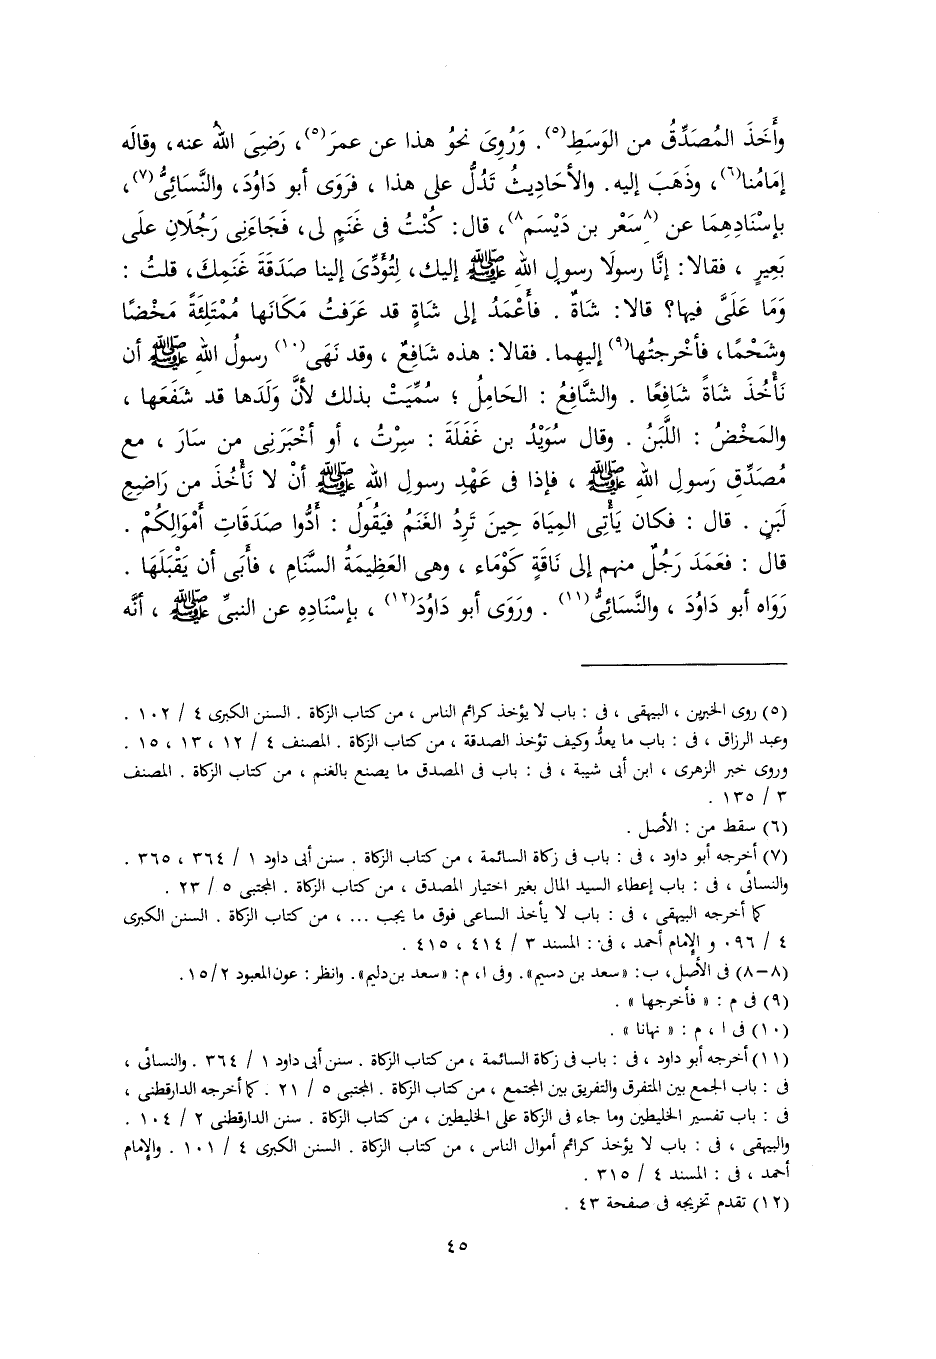 وأَخَذَ المُصَدِّقُ من الوَسَطِ(٥). وَرُوِىَ نحوُ هذا عن عمرَ(٥)، رَضِىَ اللهُ عنه، وقالَه
إمَامُنا(٦)، وذَهَبَ إليه. والأحَادِيثُ تَدُلُّ على هذا ، فرَوَى أبو دَاوُدَ، والنَّسَائِىُّ(٧)،
بإسْنَادِهِمَا عن (٨سَعْر بن دَيْسَم٨)، قال: كُنْتُ فى غَنَمٍ لى، فَجَاءَنِى رَجُلَانِ علَى
بَعِيرٍ ، فقالا: إنَّا رسولَا رسولِ اللهِ ﷺ إليك، لِتُؤَدِّىَ إلينا صَدَقَةَ غَنَمِكَ، قلتُ :
وَمَا عَلَىَّ فيها؟ قالا: شَاةٌ . فأَعْمَدُ إلى شَاةٍ قد عَرَفتُ مَكَانَها مُمْتَلِئَةً مَخْضًا
وشَحْمًا، فأخْرجتُها(٩) إليهما. فقالا: هذه شَافِعٌ ، وقد نَهَى(١٠) رسولُ اللهِ ﷺ أن
نَأْخُذَ شَاةً شَافِعًا . والشَّافِعُ : الحَامِلُ ؛ سُمِّيَتْ بذلك لأنَّ وَلَدَها قد شَفَعَها ،
والمَخْضُ : اللَّبَنُ . وقال سُوَيْدُ بن غَفَلَةَ : سِرْتُ ، أو أخْبَرَنِى من سَارَ ، مع
مُصَدِّقِ رَسولِ اللهِ ﷺ ، فإذا فى عَهْدِ رسولِ اللهِ ﷺ أنْ لا نَأْخُذَ من رَاضِعِ
لَبَنٍ . قال : فكان يَأْتِى المِيَاهَ حِينَ تَرِدُ الغَنَمُ فيَقُولُ : أَدُّوا صَدَقَاتِ أَمْوَالِكُمْ .
قال : فعَمَدَ رَجُلٌ منهم إلى نَاقَةٍ كَوْمَاء ، وهى العَظِيمَةُ السَّنَامِ ، فأَبَى أن يَقْبَلَهَا .
رَوَاه أبو دَاوُدَ ، والنَّسَائِىُّ(١١) . ورَوَى أبو دَاوُدَ(١٢) ، بإسْنَادِهِ عن النبىِّ ﷺ ، أنَّه
(٥) روى الخبرين ، البيهقى ، فى : باب لا يؤخذ كرائم الناس ، من كتاب الزكاة . السنن الكبرى ٤ / ١٠٢ .
وعبد الرزاق ، فى : باب ما يعدُّ وكيف تؤخذ الصدقة ، من كتاب الزكاة . المصنف ٤ / ١٢ ، ١٣ ، ١٥ .
وروى خبر الزهرى ، ابن أبى شيبة ، فى : باب فى المصدق ما يصنع بالغنم ، من كتاب الزكاة . المصنف
٣ / ١٣٥ .
(٦) سقط من : الأصل .
(٧) أخرجه أبو داود ، فى : باب فى زكاة السائمة ، من كتاب الزكاة . سنن أبى داود ١ / ٣٦٤ ، ٣٦٥ .
والنسائى ، فى : باب إعطاء السيد المال بغير اختيار المصدق ، من كتاب الزكاة . المجتبى ٥ / ٢٣ .
كما أخرجه البيهقى ، فى : باب لا يأخذ الساعى فوق ما يجب ... ، من كتاب الزكاة . السنن الكبرى
٤ / ٠٩٦ و الإمام أحمد ، فى: المسند ٣ / ٤١٤ ، ٤١٥ .
(٨-٨) فى الأصل، ب: «سعد بن دسيم». وفى ا، م: «سعد بن دليم». وانظر: عون المعبود ١٥/٢.
(٩) فى م : « فأخرجها » .
(١٠) فى ا ، م : « نهانا » .
(١١) أخرجه أبو داود ، فى : باب فى زكاة السائمة ، من كتاب الزكاة . سنن أبى داود ١ / ٣٦٤ . والنسائى ،
فى : باب الجمع بين المتفرق والتفريق بين المجتمع ، من كتاب الزكاة . المجتبى ٥ / ٢١ . كما أخرجه الدارقطنى ،
فى : باب تفسير الخليطين وما جاء فى الزكاة على الخليطين ، من كتاب الزكاة . سنن الدارقطنى ٢ / ١٠٤ .
والبيهقى ، فى : باب لا يؤخذ كرائم أموال الناس ، من كتاب الزكاة . السنن الكبرى ٤ / ١٠١ . والإمام
أحمد ، فى : المسند ٤ / ٣١٥ .
(١٢) تقدم تخريجه فى صفحة ٤٣ .
٤٥